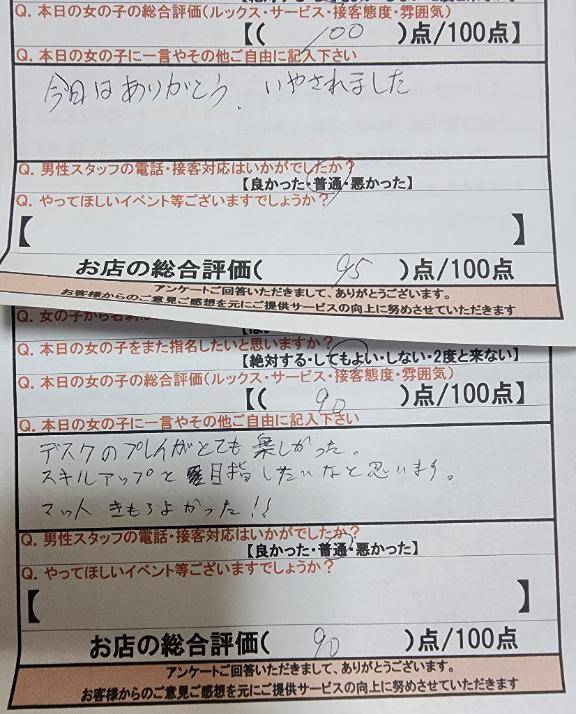 Q. 本日の女の子の総合評価(ルックス・サービス・接客態度・雰囲気)
【( 100 )点/100点】
Q. 本日の女の子に一言やその他ご自由に記入下さい
今日はありがとう、いやされました
Q. 男性スタッフの電話・接客対応はいかがでしたか？
【良かった・普通・悪かった】
Q. やってほしいイベント等ございますでしょうか？
【 】
お店の総合評価( 95 )点/100点
アンケートご回答いただきまして、ありがとうございます。
お客様からのご意見ご感想を元にご提供サービスの向上に努めさせていただきます
Q. 女の子から名刺は
Q. 本日の女の子をまた指名したいと思いますか？
【絶対する・してもよい・しない・2度と来ない】
Q. 本日の女の子の総合評価(ルックス・サービス・接客態度・雰囲気)
【( 90 )点/100点】
Q. 本日の女の子に一言やその他ご自由に記入下さい
デスクのプレイがとても楽しかった。
スキルアップと目指したいなと思います。
マット きもちよかった!!
Q. 男性スタッフの電話・接客対応はいかがでしたか？
【良かった・普通・悪かった】
Q. やってほしいイベント等ございますでしょうか？
【 】
お店の総合評価( 90 )点/100点
アンケートご回答いただきまして、ありがとうございます。
お客様からのご意見ご感想を元にご提供サービスの向上に努めさせていただきます